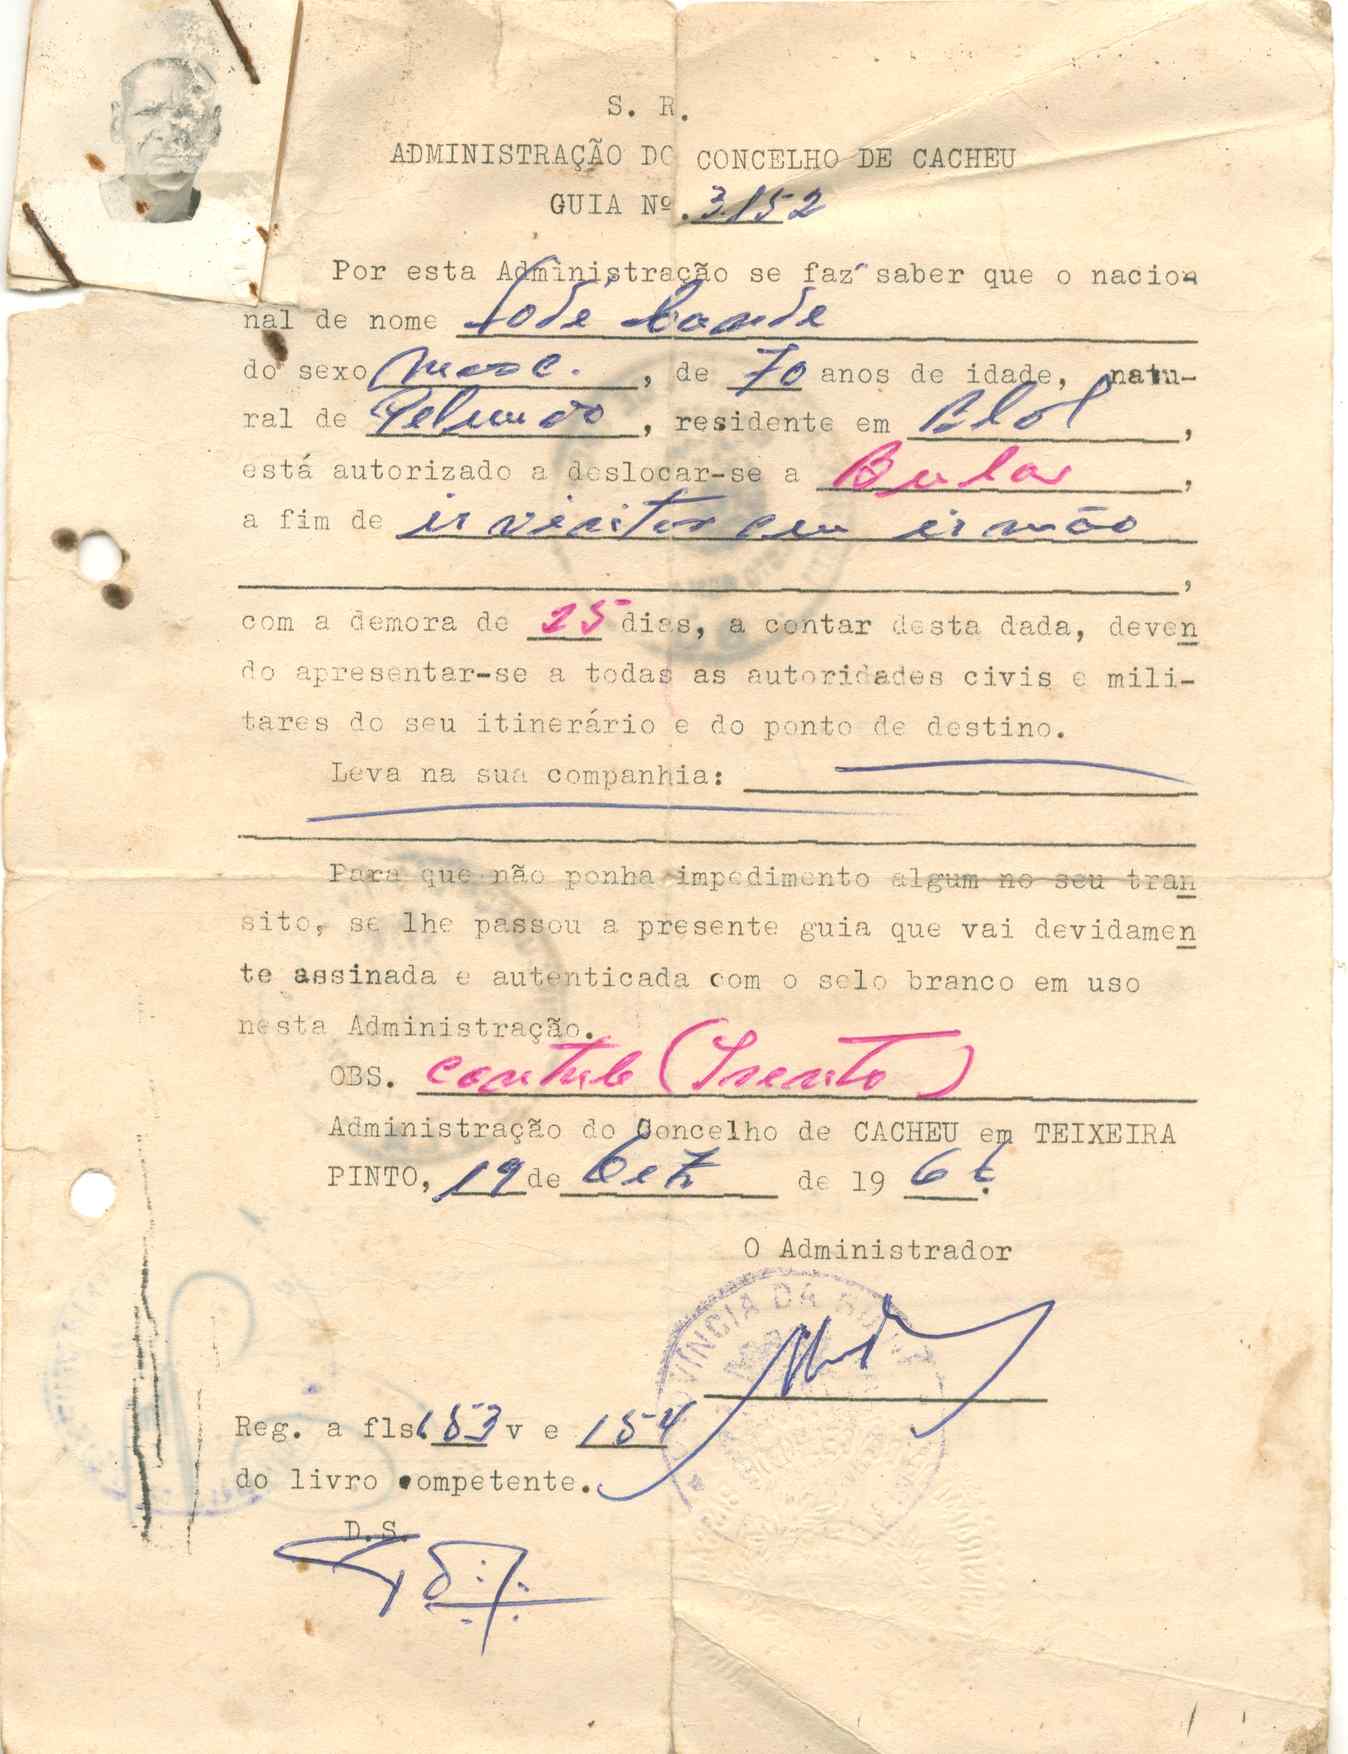 S. R.
ADMINISTRAÇÃO DO CONCELHO DE CACHEU
GUIA Nº. 3152
Por esta Administração se faz saber que o nacio-
nal de nome
do sexo masc. , de 70 anos de idade, natu-
ral de Pelundo , residente em ,
está autorizado a deslocar-se a Bula ,
a fim de ir visitar seu irmão
,
com a demora de 25 dias, a contar desta dada, deven
do apresentar-se a todas as autoridades civis e mili-
tares do seu itinerário e do ponto de destino.
Leva na sua companhia:
Para que não ponha impedimento algum no seu tran
sito, se lhe passou a presente guia que vai devidamen
te assinada e autenticada com o selo branco em uso
nesta Administração.
OBS. (Isento)
Administração do Concelho de CACHEU em TEIXEIRA
PINTO, 19 de Dez de 196
O Administrador
VINCIA DA
Reg. a fls. 153 v e 154
do livro competente.
D.S.